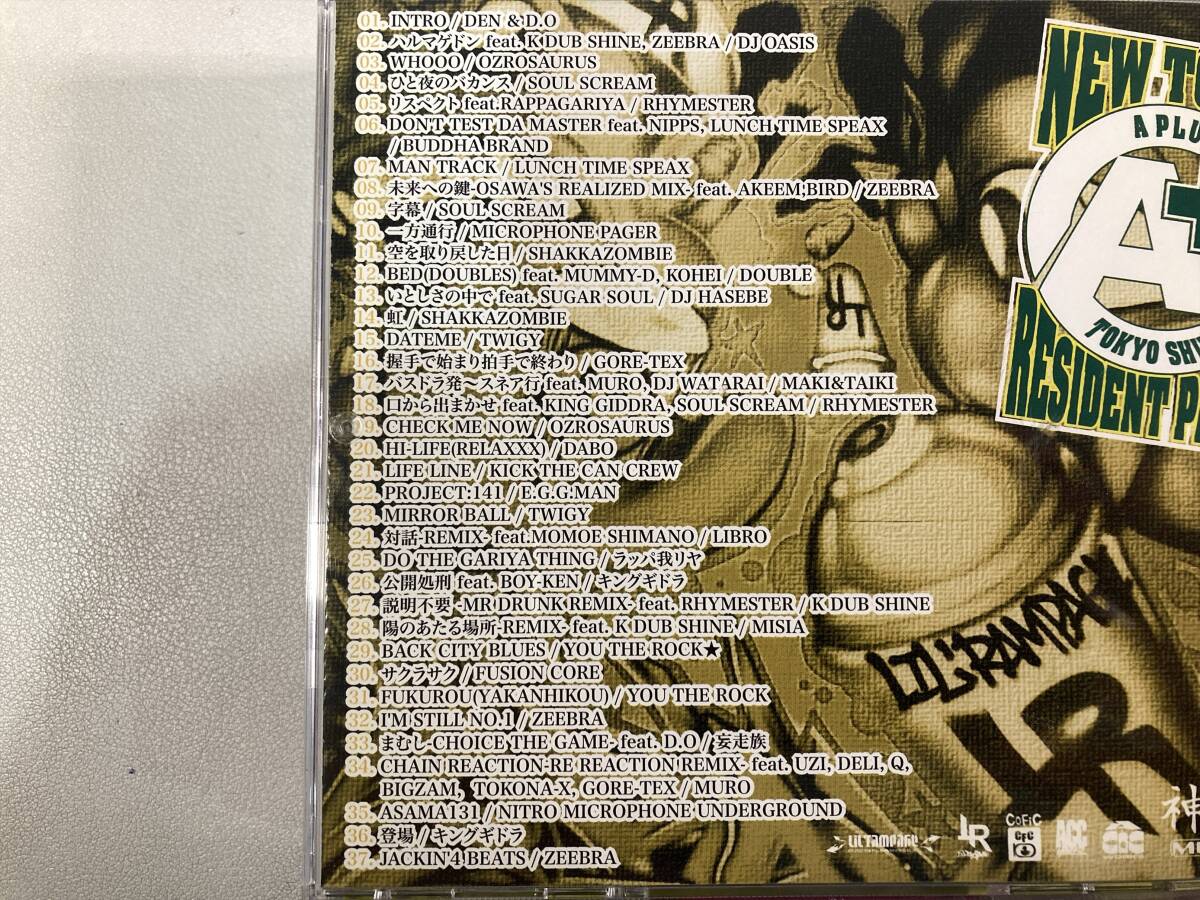 01. INTRO / DEN & D.O
02. ハルマゲドン feat. K DUB SHINE, ZEEBRA / DJ OASIS
03. WHOOO / OZROSAURUS
04. ひと夜のバカンス / SOUL SCREAM
05. リスペクト feat.RAPPAGARIYA / RHYMESTER
06. DON'T TEST DA MASTER feat. NIPPS, LUNCH TIME SPEAX
/ BUDDHA BRAND
07. MAN TRACK / LUNCH TIME SPEAX
08. 未来への鍵-OSAWA'S REALIZED MIX- feat. AKEEM;BIRD / ZEEBRA
09. 字幕 / SOUL SCREAM
10. 一方通行 / MICROPHONE PAGER
11. 空を取り戻した日 / SHAKKAZOMBIE
12. BED(DOUBLES) feat. MUMMY-D, KOHEI / DOUBLE
13. いとしさの中で feat. SUGAR SOUL / DJ HASEBE
14. 虹 / SHAKKAZOMBIE
15. DATEME / TWIGY
16. 握手で始まり拍手で終わり / GORE-TEX
17. バスドラ発〜スネア行 feat. MURO, DJ WATARAI / MAKI&TAIKI
18. 口から出まかせ feat. KING GIDDRA, SOUL SCREAM / RHYMESTER
19. CHECK ME NOW / OZROSAURUS
20. HI-LIFE(RELAXXX) / DABO
21. LIFE LINE / KICK THE CAN CREW
22. PROJECT:141 / E.G.G.MAN
23. MIRROR BALL / TWIGY
24. 対話-REMIX- feat.MOMOE SHIMANO / LIBRO
25. DO THE GARIYA THING / ラッパ我リヤ
26. 公開処刑 feat. BOY-KEN / キングギドラ
27. 説明不要 -MR DRUNK REMIX- feat. RHYMESTER / K DUB SHINE
28. 陽のあたる場所-REMIX- feat. K DUB SHINE / MISIA
29. BACK CITY BLUES / YOU THE ROCK★
30. サクラサク / FUSION CORE
31. FUKUROU(YAKANHIKOU) / YOU THE ROCK
32. I'M STILL NO.1 / ZEEBRA
33. まむし-CHOICE THE GAME- feat. D.O / 妄走族
34. CHAIN REACTION-RE REACTION REMIX- feat. UZI, DELI, Q,
BIGZAM, TOKONA-X, GORE-TEX / MURO
35. ASAMA131 / NITRO MICROPHONE UNDERGROUND
36. 登場 / キングギドラ
37. JACKIN'4 BEATS / ZEEBRA
NEW T
A PLU
A+
TOKYO SHI
RESIDENT P
LIL'RAMPAGE
LR
LIL'RAMPAGE
LR
COFIC
CFC
ACC
神